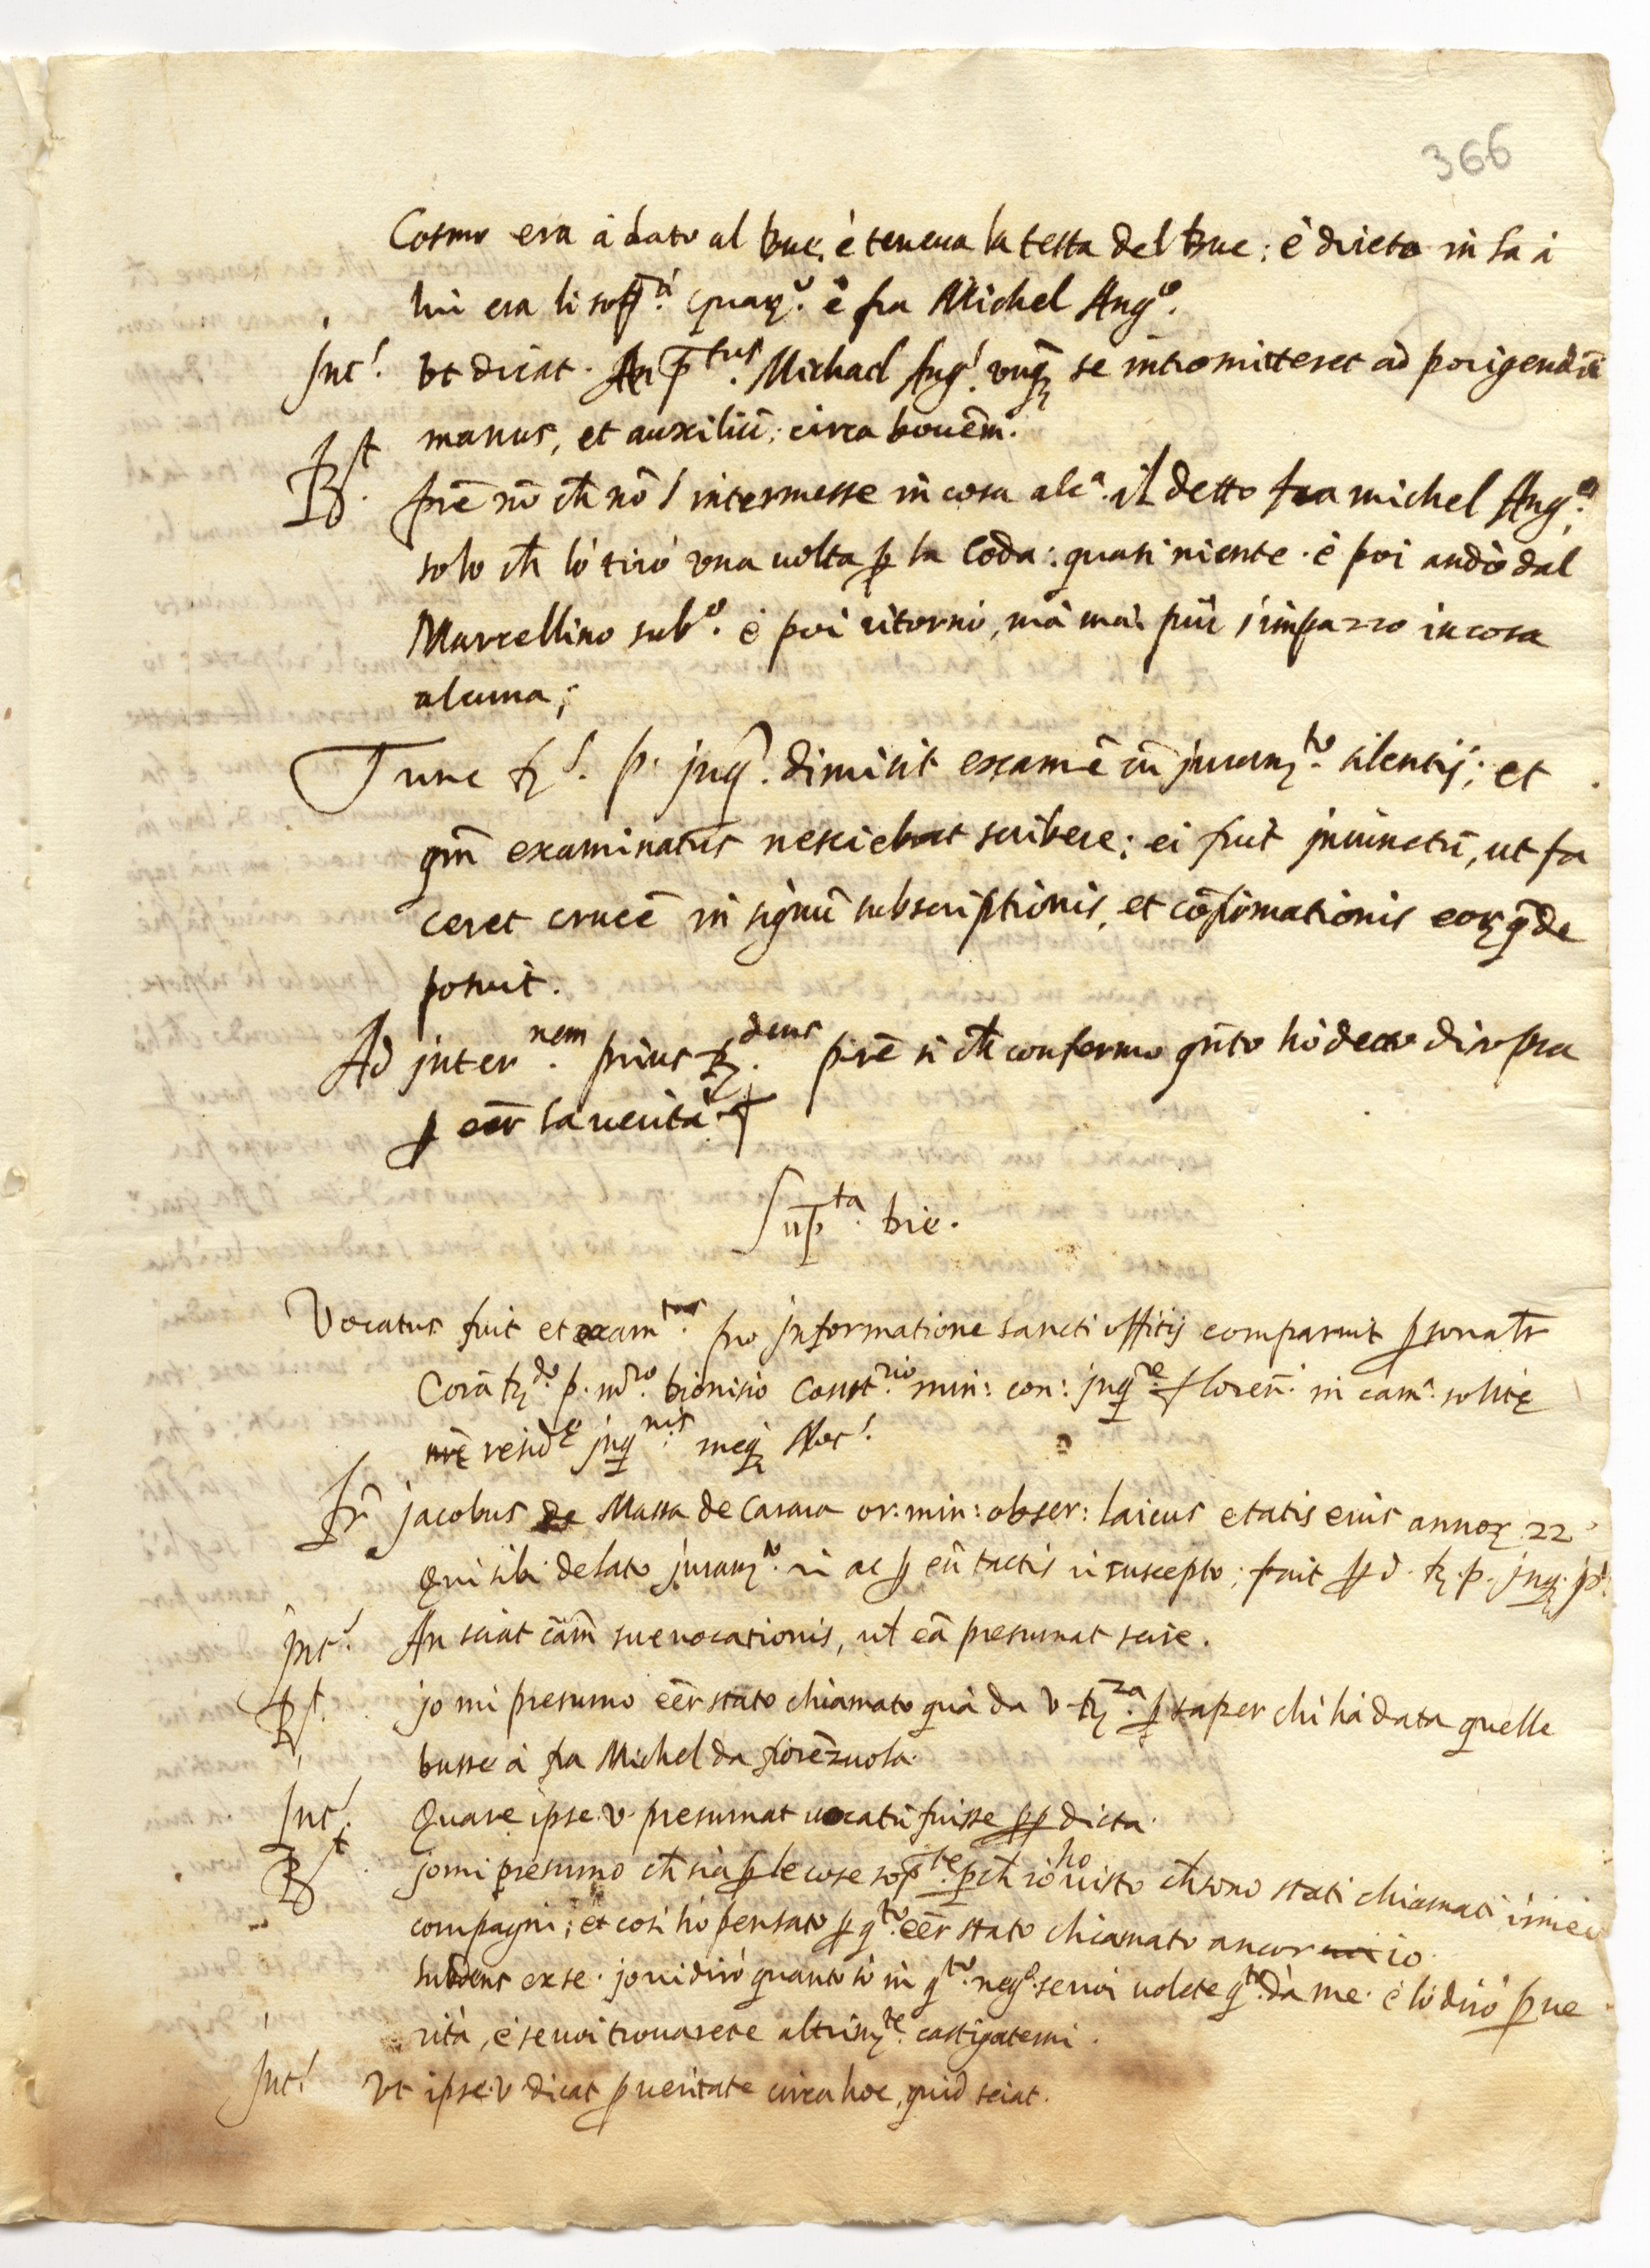 366
Cosmo era à lato al bue, è teneua la testa del bue: è dieto in la à
lui era li sop.ti è fra Michel Ang.o.
Int.s Vt dicat. An p.tus Michael Ang.s unq̃ se intromitteret ad porigendũ
manus, et auxiliũ, circa bouẽm.
R.t prẽ nõ ch̃ nõ s intermesse in cosa alc.a il detto fra michel Ang.o,
solo ch̃ lò tirò una uolta ꝑ la Coda: quasi niente. è poi andò dal
Marcellino sub.o. è poi ritornò, mà mai più s'impazzo in cosa
alcuna;
Tunc R.s p. jnq.r dimisit examẽ cũ juram.to silentij; et
qm̃ examinatus nesciebat scribere; ei fuit jniunctũ, ut fa
ceret crucẽ in signũ subscriptionis, et cõfirmationis eorꝫ q̃ de
posuit.
Ad inter.nem prius R.dens prẽ si ch̃ confermo qñto hò detto di sopra
ꝑ eẽr la uerità. +
Sup.ta die.
Vocatus fuit et exam.tus pro jnformatione sancti offitij comparuit ꝑsonalr̃
Corã R.do p. m.ro Dionisio Cost.rio min: con: jnq.re floreñ. in cam.a solitę
resid.ę jnq.nis meq̃ Not.s
Fr̃ jacobus de Massa de Carara or: min: obser: laicus etatis eius annorꝫ 22
Qui sibi delato juram.to ꝑ eũ tactis suscepto; fuit ꝑ d. R. p. jnq.
Int.s An sciat cãm sue uocationis, ul̃ eã presumat scire.
R.t jo mi presumo eẽr stato chiamato quà da V. R.za ꝑ saper chi hà data quelle
busse à fra Michel da fiorẽzuola.
Int.s Quare ipse. V. presumat uocatũ fuisse dicta.
R.t jo mi presumo ch̃ sia ꝑ le cose sop.te ꝑch̃ iò ho uisto ch̃ sono stati chiamati i miei
compagni; et così hò pensato ꝑ q.to eẽr stato chiamato ancor io.
subdens ex se. jo ui dirò quanto sò in q.to neg.o se uoi uolete q.to dà me. è lò dirò ꝑ ue
rità, è se uoi trouarete altrim.te castigatemi.
Int.s Vt ipse. V dicat ꝑ ueritate circa hoc, quid sciat.